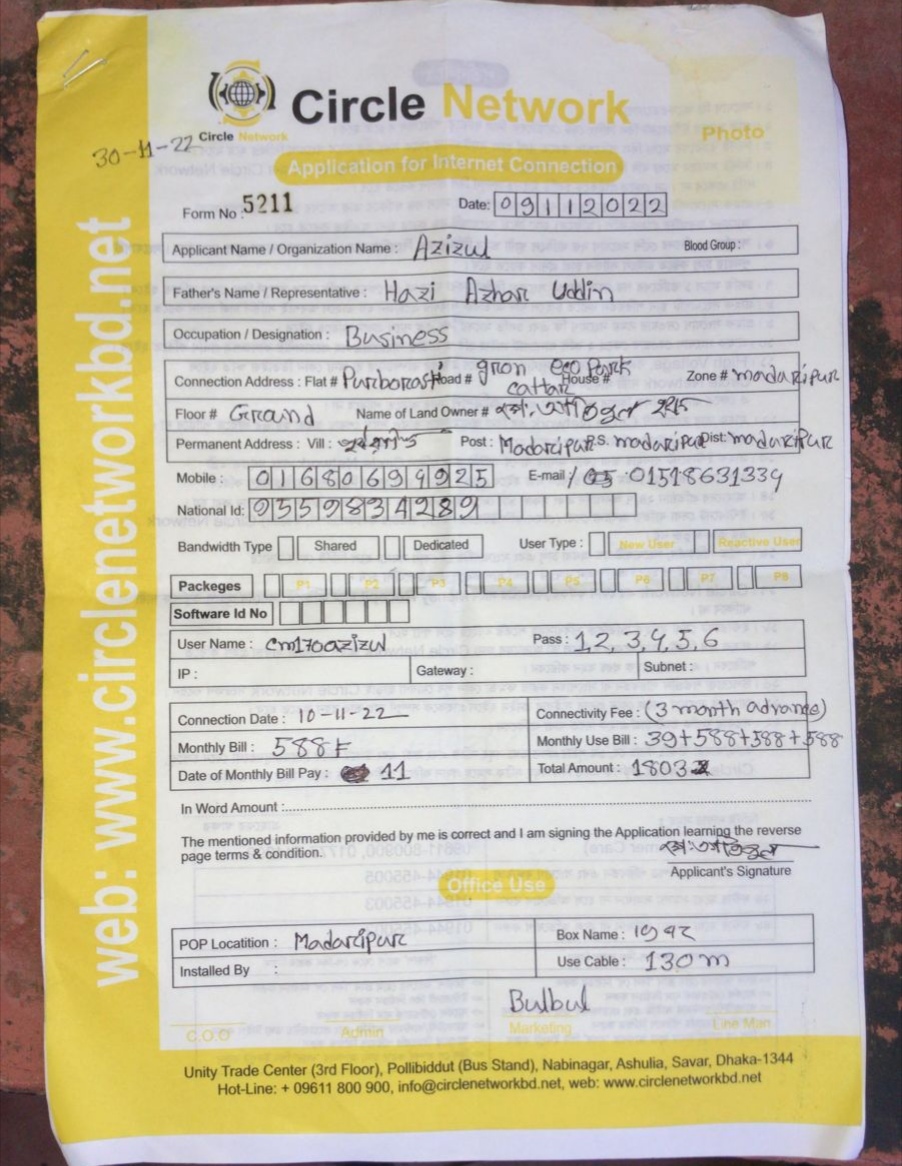 Circle Network
Circle Network
30-11-22
Photo
Application for Internet Connection
Form No : 5211
Date: 09112022
Applicant Name / Organization Name : Azizul
Blood Group :
Father's Name / Representative : Hazi Azhar Uddin
Occupation / Designation : Business
Connection Address : Flat # Road # eco Park House # Zone # madaripur
Floor # Ground Name of Land Owner #
Permanent Address : Vill : Post : Madaripur P.S. madaripur Dist: madaripur
Mobile : 01680694925 E-mail / 01518631334
National Id: 9359834289
Bandwidth Type Shared Dedicated User Type : New User Reactive User
Packeges P1 P2 P3 P4 P5 P6 P7 P8
Software Id No
User Name : cm170azizul Pass : 1,2,3,4,5,6
IP : Gateway : Subnet :
Connection Date : 10-11-22 Connectivity Fee : (3 month advance)
Monthly Bill : 588 Monthly Use Bill : 39+588+588+588
Date of Monthly Bill Pay : 11 Total Amount : 1803
In Word Amount :
The mentioned information provided by me is correct and I am signing the Application learning the reverse
page terms & condition.
Applicant's Signature
Office Use
POP Locatition : Madaripur Box Name :
Installed By : Use Cable : 130m
Bulbul
C.O.O Admin Marketing Line Man
Unity Trade Center (3rd Floor), Pollibiddut (Bus Stand), Nabinagar, Ashulia, Savar, Dhaka-1344
Hot-Line: + 09611 800 900, info@circlenetworkbd.net, web: www.circlenetworkbd.net
web: www.circlenetworkbd.net